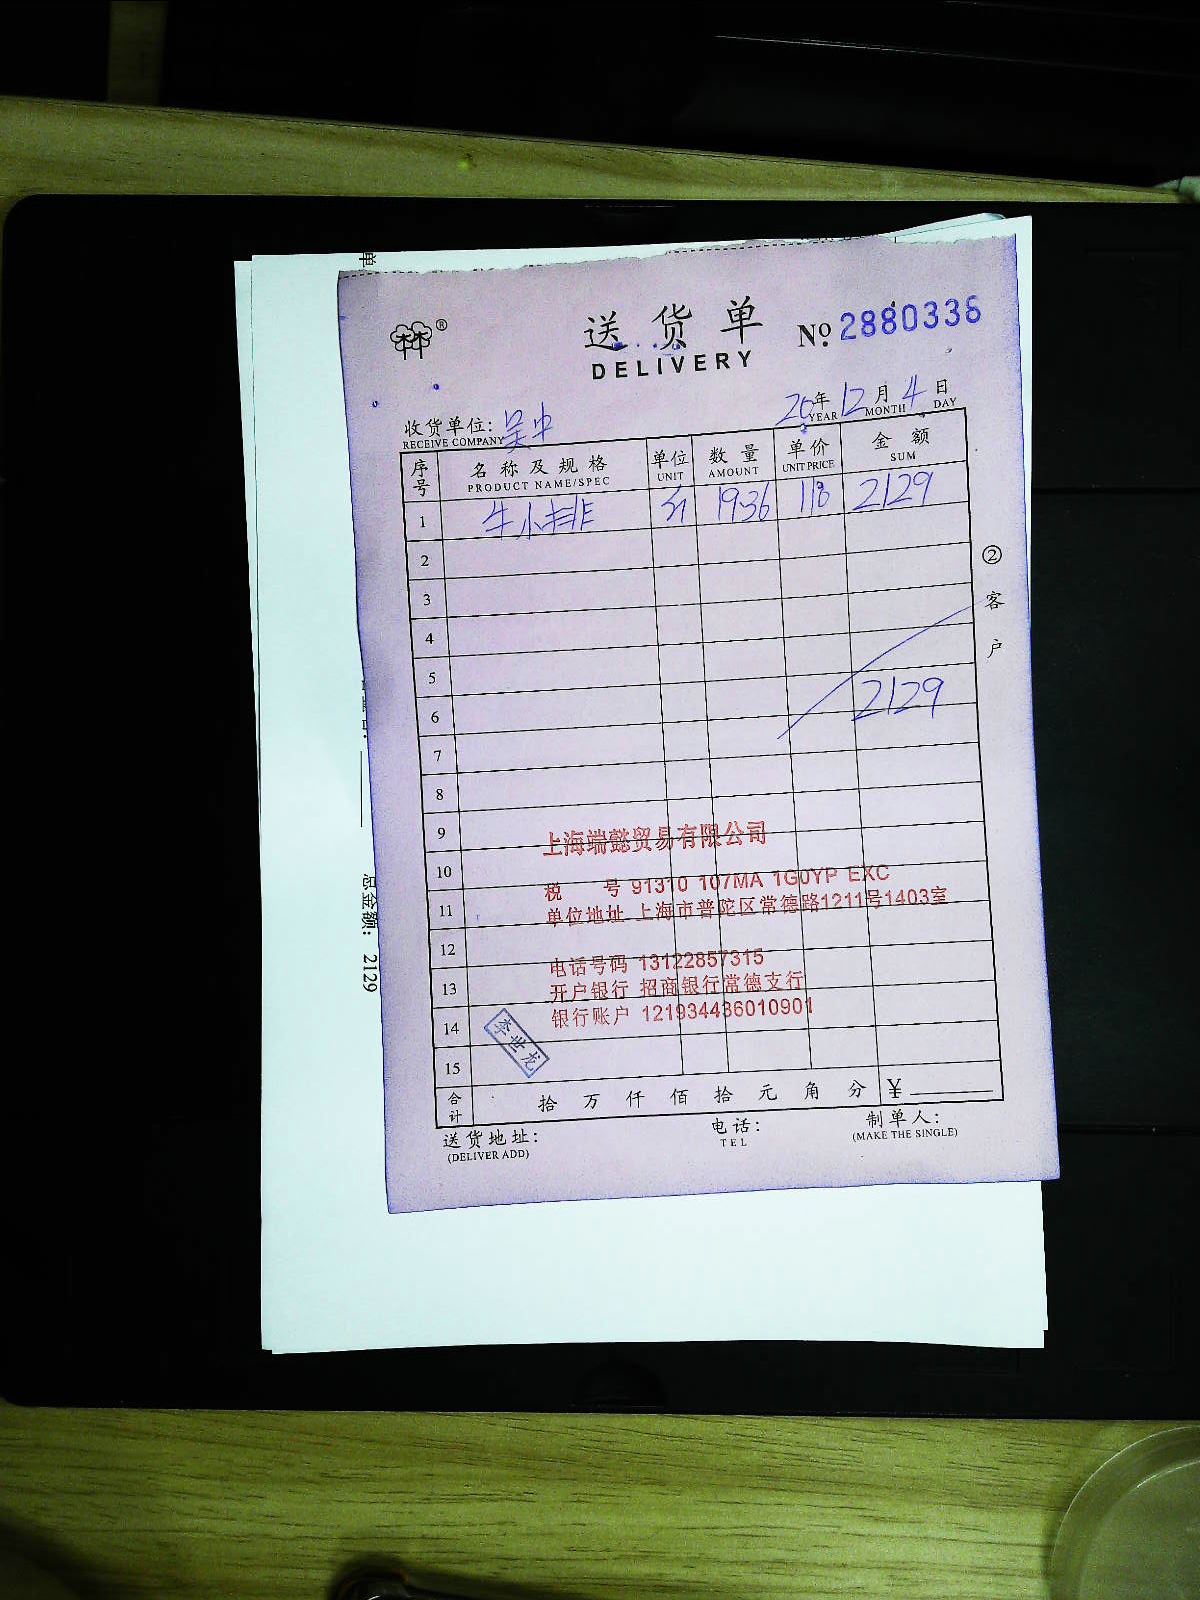 单
送货单
DELIVERY
No. 2880336
®
20年12月4日
YEAR MONTH DAY
收货单位: 吴中
RECEIVE COMPANY
序号 名称及规格 单位 数量 单价 金额
PRODUCT NAME/SPEC UNIT AMOUNT UNIT PRICE SUM
1 牛小排 斤 19.36 110 2129
2
3
4
5
6 2129
7
8
9
10
11
12
13
14
15
②客户
上海端懿贸易有限公司
税 号 91310 107MA 1G0YP EXC
单位地址 上海市普陀区常德路1211号1403室
电话号码 13122857315
开户银行 招商银行常德支行
银行账户 121934436010901
李世龙
合计 拾 万 仟 佰 拾 元 角 分 ¥
送货地址: 电话: 制单人:
(DELIVER ADD) TEL (MAKE THE SINGLE)
总金额: 2129